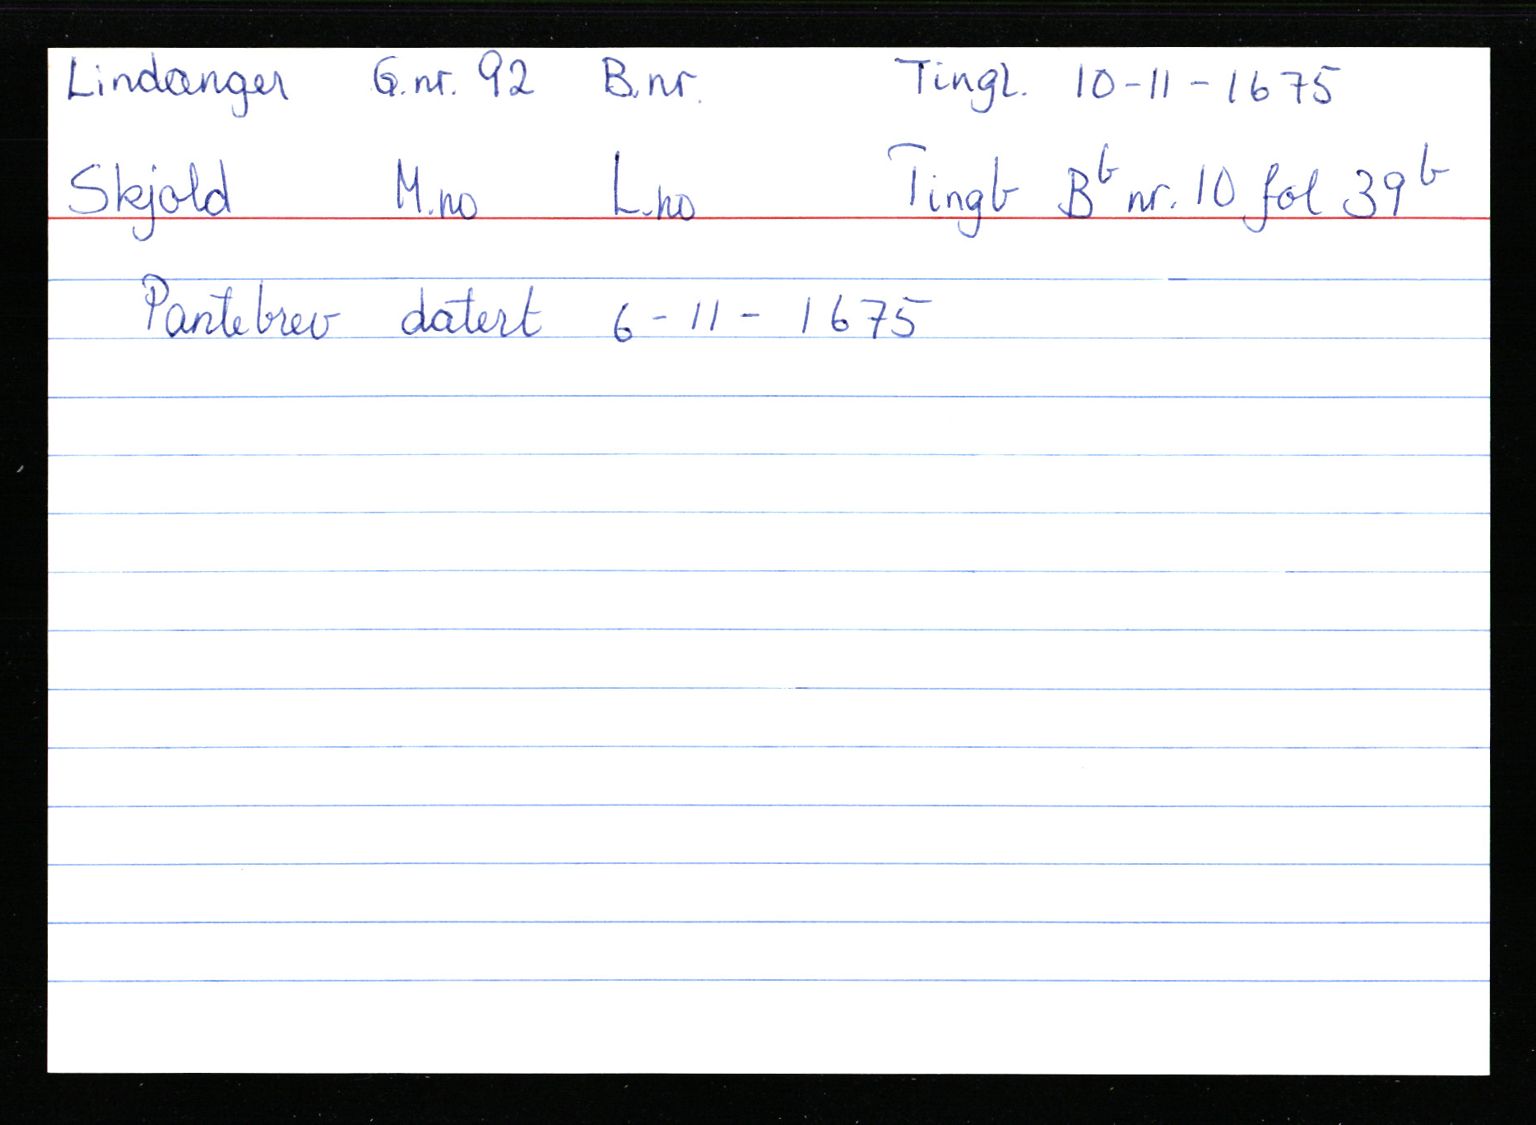 Lindanger G.nr. 92 B.nr. Tingl. 10-11-1675
Skjold M.no L.no Tingb Bb nr. 10 fol 39b
Pantebrev datert 6-11-1675